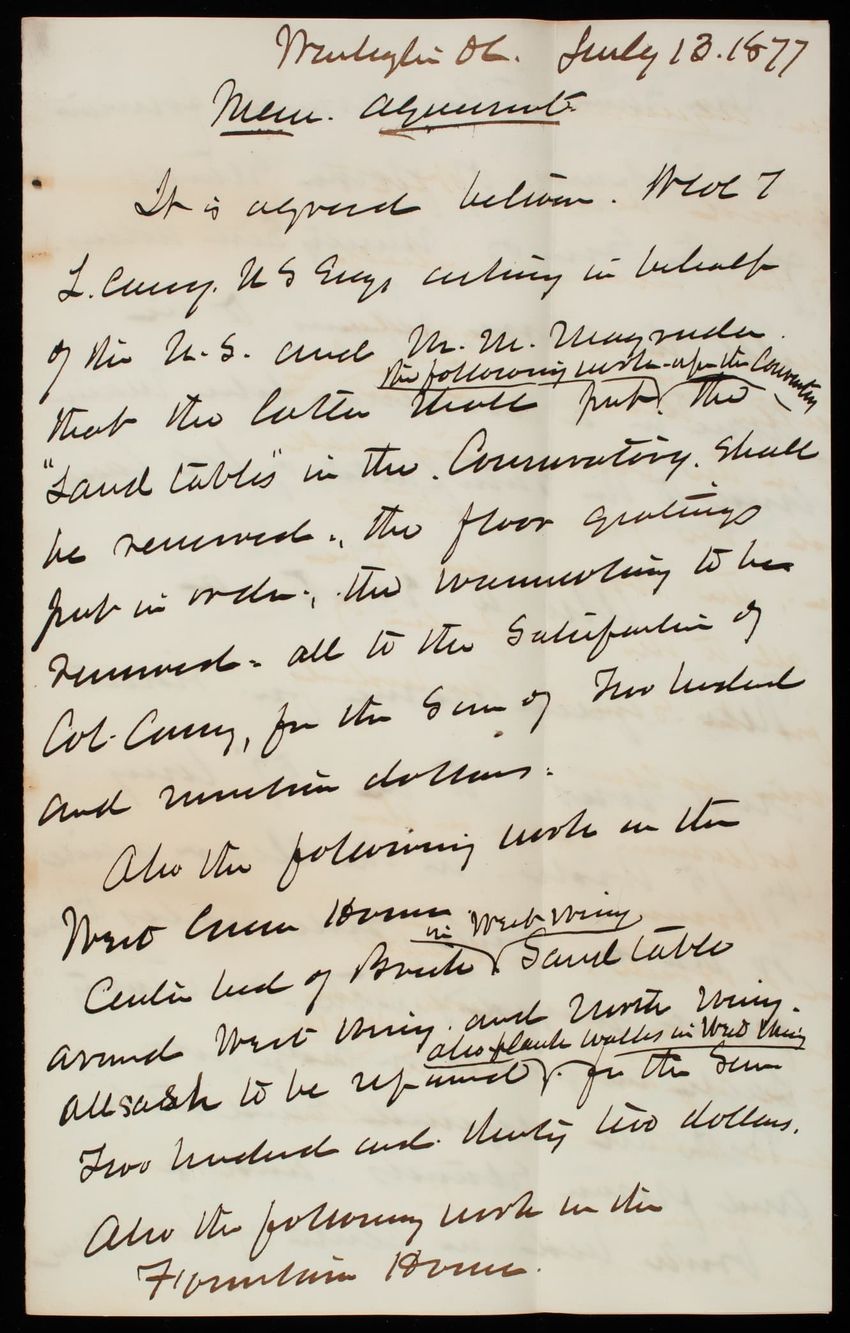 Washington DC. July 13. 1877
Mem. Agreement
It is agreed between. Col T
L. Casey. U S Engs acting in behalf
of the U.S. and M. M. Magruder.
that the latter shall put the following work upon the Conservatory, the
"Sand tables" in the Conservatory. Shall
be renewed., the floor gratings
put in order., the wainscoting to be
renewed - all to the satisfaction of
Col. Casey, for the Sum of Two hundred
and nineteen dollars.
Also the following work in the
West Green House.
Center bed of Brick in West wing, Sand table
around West Wing. and North Wing.
all sash to be repaired also plank walks in West Wing for the Sum
Two hundred and thirty two dollars.
Also the following work in the
Fountain House.